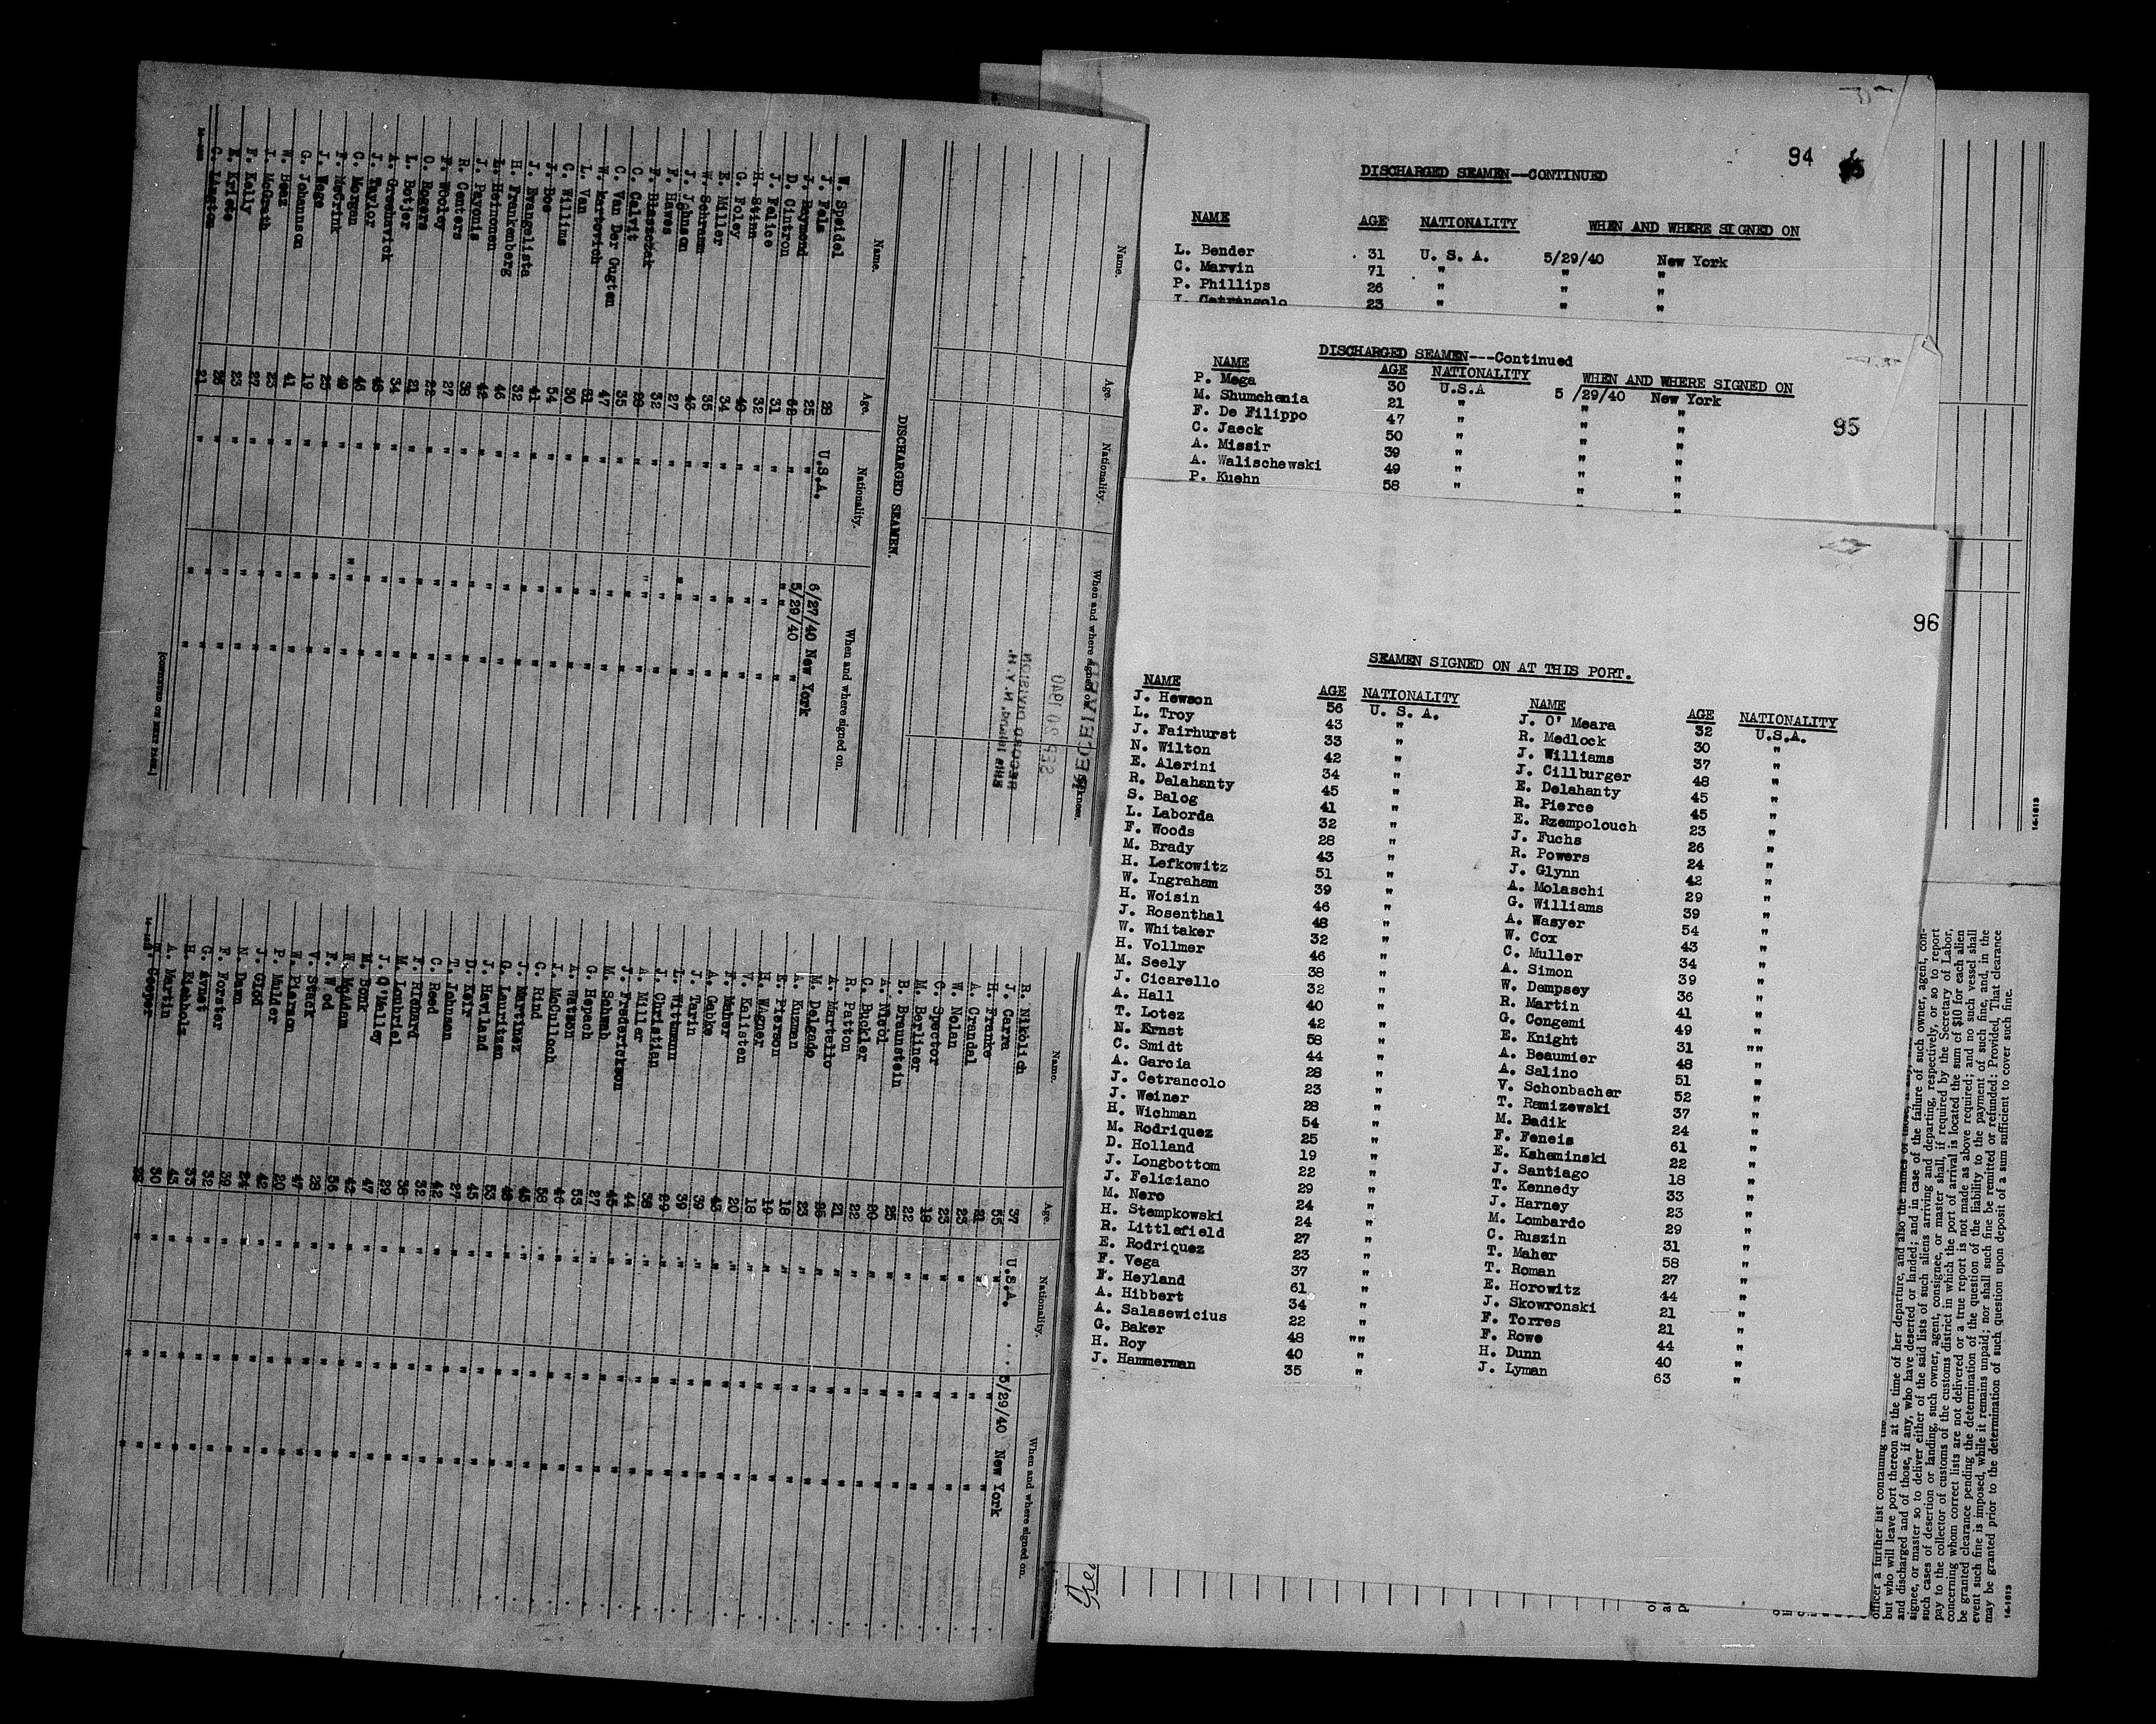 94
DISCHARGED SEAMEN--CONTINUED
NAME AGE NATIONALITY WHEN AND WHERE SIGNED ON
L. Bender 31 U. S. A. 5/29/40 New York
C. Marvin 71 " " "
P. Phillips 26 " " "
23 " " "
DISCHARGED SEAMEN---Continued
NAME AGE NATIONALITY WHEN AND WHERE SIGNED ON
95
P. Mega 30 U.S.A 5 /29/40 New York
M. Shumchenia 21 " " "
F. De Filippo 47 " " "
C. Jaeck 50 " " "
A. Missir 39 " " "
A. Walischewski 49 " " "
P. Kuehn 58 " " "
96
SEAMEN SIGNED ON AT THIS PORT.
NAME AGE NATIONALITY
J. Hewson 56 U. S. A.
L. Troy 43 "
J. Fairhurst 33 "
N. Wilton 42 "
E. Alerini 34 "
R. Delahanty 45 "
S. Balog 41 "
L. Laborda 32 "
F. Woods 28 "
M. Brady 43 "
H. Lefkowitz 51 "
W. Ingraham 39 "
H. Woisin 46 "
J. Rosenthal 48 "
W. Whitaker 32 "
H. Vollmer 46 "
M. Seely 38 "
J. Cicarello 32 "
A. Hall 40 "
T. Lotez 42 "
N. Ernst 58 "
C. Smidt 44 "
A. Garcia 28 "
J. Cetrancolo 23 "
J. Weiner 28 "
H. Wichman 54 "
M. Rodriquez 25 "
D. Holland 19 "
J. Longbottom 22 "
J. Feliciano 29 "
M. Nero 24 "
H. Stempkowski 24 "
R. Littlefield 27 "
E. Rodriquez 23 "
F. Vega 37 "
F. Heyland 61 "
A. Hibbert 34 "
A. Salasewicius 22 "
G. Baker 48 ""
H. Roy 40 "
J. Hammerman 35 "
NAME AGE NATIONALITY
J. O' Meara 32 U.S.A.
R. Medlock 30 "
J. Williams 37 "
J. Cillburger 48 "
E. Delahanty 45 "
R. Pierce 45 "
E. Rzempolouch 23 "
J. Fuchs 26 "
R. Powers 24 "
J. Glynn 42 "
A. Molaschi 29 "
G. Williams 39 "
A. Wasyer 54 "
W. Cox 43 "
C. Muller 34 "
A. Simon 39 "
W. Dempsey 36 "
R. Martin 41 "
G. Congemi 49 "
E. Knight 31 ""
A. Beaumier 48 "
A. Salino 51 "
V. Schonbacher 52 "
T. Ramizewski 37 "
M. Badik 24 "
F. Feneis 61 "
E. Ksheminski 22 "
J. Santiago 18 "
T. Kennedy 33 "
J. Harney 23 "
M. Lombardo 29 "
C. Ruszin 31 "
T. Maher 58 "
T. Roman 27 "
E. Horowitz 44 "
J. Skowronski 21 "
F. Torres 21 "
F. Rowe 44 "
H. Dunn 40 "
J. Lyman 63 "
Name. Age. Nationality. When and where signed on.
RECEIVED
SEP 20 1940
RECORD DIVISION
Ellis Island, N.Y.H.
DISCHARGED SEAMEN.
Name. Age. Nationality. When and where signed on.
W. Speidel 28 U.S.A. 6/27/40 New York
J. Fels 25 " 5/29/40 "
J. Raymond
D. Cintron
J. Felice 31
H. Stinn 32
G. Foley
E. Miller 34
W. Schramm 35
J. Johnson
F. Hawes 27
F. Blaszczak 32
C. Calvit
C. Van Der Gugten 35
W. Kartovich 47
L. Van 51
C. Willims 30
J. Boe 54
J. Evangelista 41
H. Frankenberg 32
L. Heinonen 46
J. Payonis 42
R. Centers 38
F. Wooley 27
O. Rogers 22
L. Botjer 21
A. Greehnavick 34
J. Taylor
C. Morgan 46
F. McGrink
J. Wage 25
G. Johannson 19
W. Heaz 41
I. McGrath 23
F. Kelly 27
E. Kriete 23
C. 21
[CONTINUED ON NEXT PAGE.]
Name. Age. Nationality. When and where signed on.
R. Nikolich 37 U.S.A. 5/29/40 New York
J. Carra 55 " " "
H. Franke
A. Crandal
W. Nolan
C. Spector 23
M. Berliner 18
B. Braunstein 22
A. Nicol 25
C. Buckler 20
R. Patton 22
A. Martello 21
M. Delgado
A. Kuzman 23
E. Pierson 18
H. Wagner 19
V. Kalisten 18
F. Maher 20
A. Gabke
J. Tarin 39
L. Wittmann 39
J. Christian
A. Miller
J. Frederickson 44
M. Schwab 45
G. Hepach 27
A. Watson 53
I. McCulloch
C. Rind 58
J. Martinez 45
G. Lauritzen
J. Haviland 53
D. Keir 45
T. Johnson 27
C. Reed 42
F. Richard 32
M. Lombriel 38
J. O'Malley 29
M. Bonk 47
W. McAdam 42
F. Wood 56
V. Stack 28
W. Pierson 47
P. Mulder 20
J. Glod 42
N. Dawn 24
F. Forster 39
C. Avnet 32
H. Eichholz 33
A. Martin 45
Cooper
officer a further list containing the
but who will leave port thereon at the time of her departure, and also the names of those, if any,
and discharged and of those, if any, who have deserted or landed; and in case of the failure of such owner, agent, con-
signee, or master so to deliver either of the said lists of such aliens arriving and departing, respectively, or so to report
such cases of desertion or landing, such owner, agent, consignee, or master shall, if required by the Secretary of Labor,
pay to the collector of customs of the customs district in which the port of arrival is located the sum of $10 for each alien
concerning whom correct lists are not delivered or a true report is not made as above required; and no such vessel shall
be granted clearance pending the determination of the question of the liability to the payment of such fine, and, in the
event such fine is imposed, while it remains unpaid; nor shall such fine be remitted or refunded: Provided, That clearance
may be granted prior to the determination of such question upon deposit of a sum sufficient to cover such fine.
14-1613
14-1613